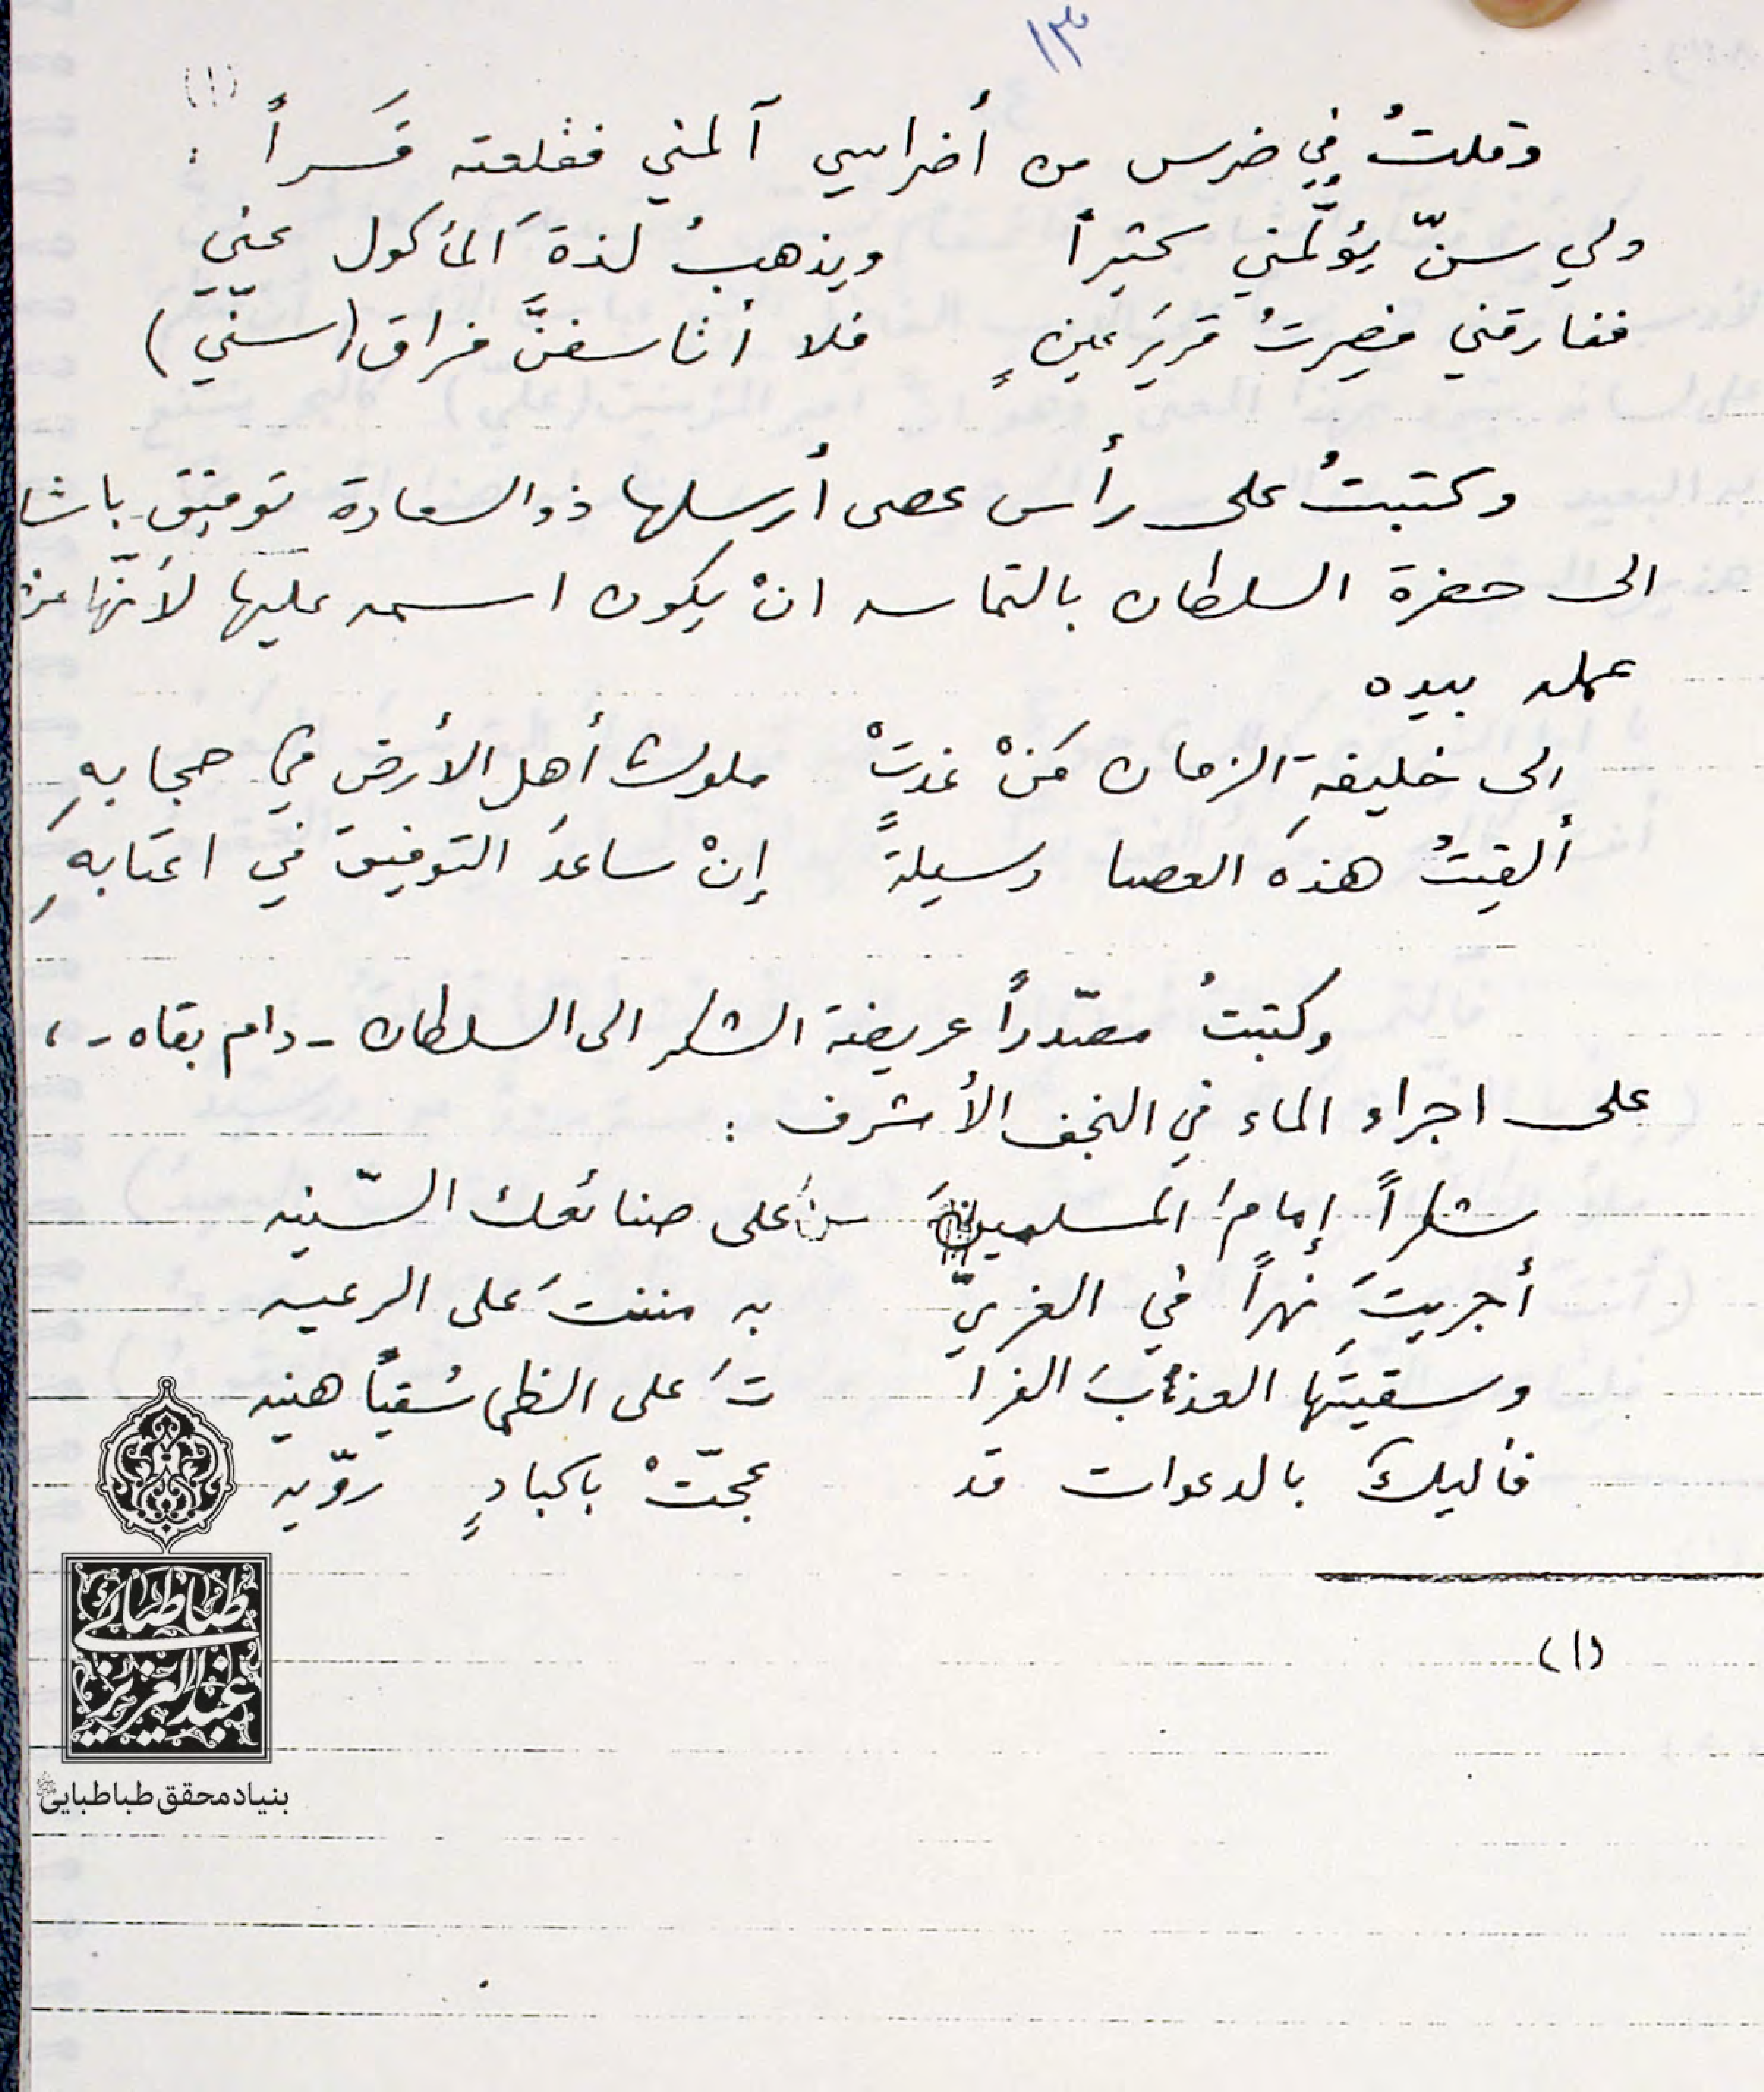 ١٣
وقلتُ في ضرس من أضراسي آلمني فقلعته قَسراً (١) :
ولي سنّ يؤلّمني كثيراً ويذهبُ لذةَ المأكول عنّي
ففارقني فصِرتُ قريرَ عينٍ فلا أتأسفنَّ فراق (سنّي)
وكتبتُ على رأس عصى أرسلها ذو السعادة توفيق باشا
الى حضرة السلطان بالتماسه انْ يكون اسمه عليها لأنّها من
عمله بيده
الى خليفةِ الزمان مَنْ غدتْ ملوك أهل الأرض في حجابهِ
ألقيتُ هذه العصا وسيلةً إنْ ساعدَ التوفيق في اعتابهِ
وكتبتُ مصدّراً عريضة الشكر الى السلطان - دام بقاه - ،
على اجراء الماء في النجف الأشرف :
شكراً إمامَ المسلميـ ـن على صنائعك السّنيه
أجريتَ نهراً في الغريّ به مننتَ على الرعيه
وسقيتَها العذبَ الفرا تَ على الظما سُقياً هنيه
فأليكَ بالدعوات قد عجّتْ باكبادٍ رويّه
(١)
طباطبائی
عبدالعزیز
بنیاد محقق طباطبایی